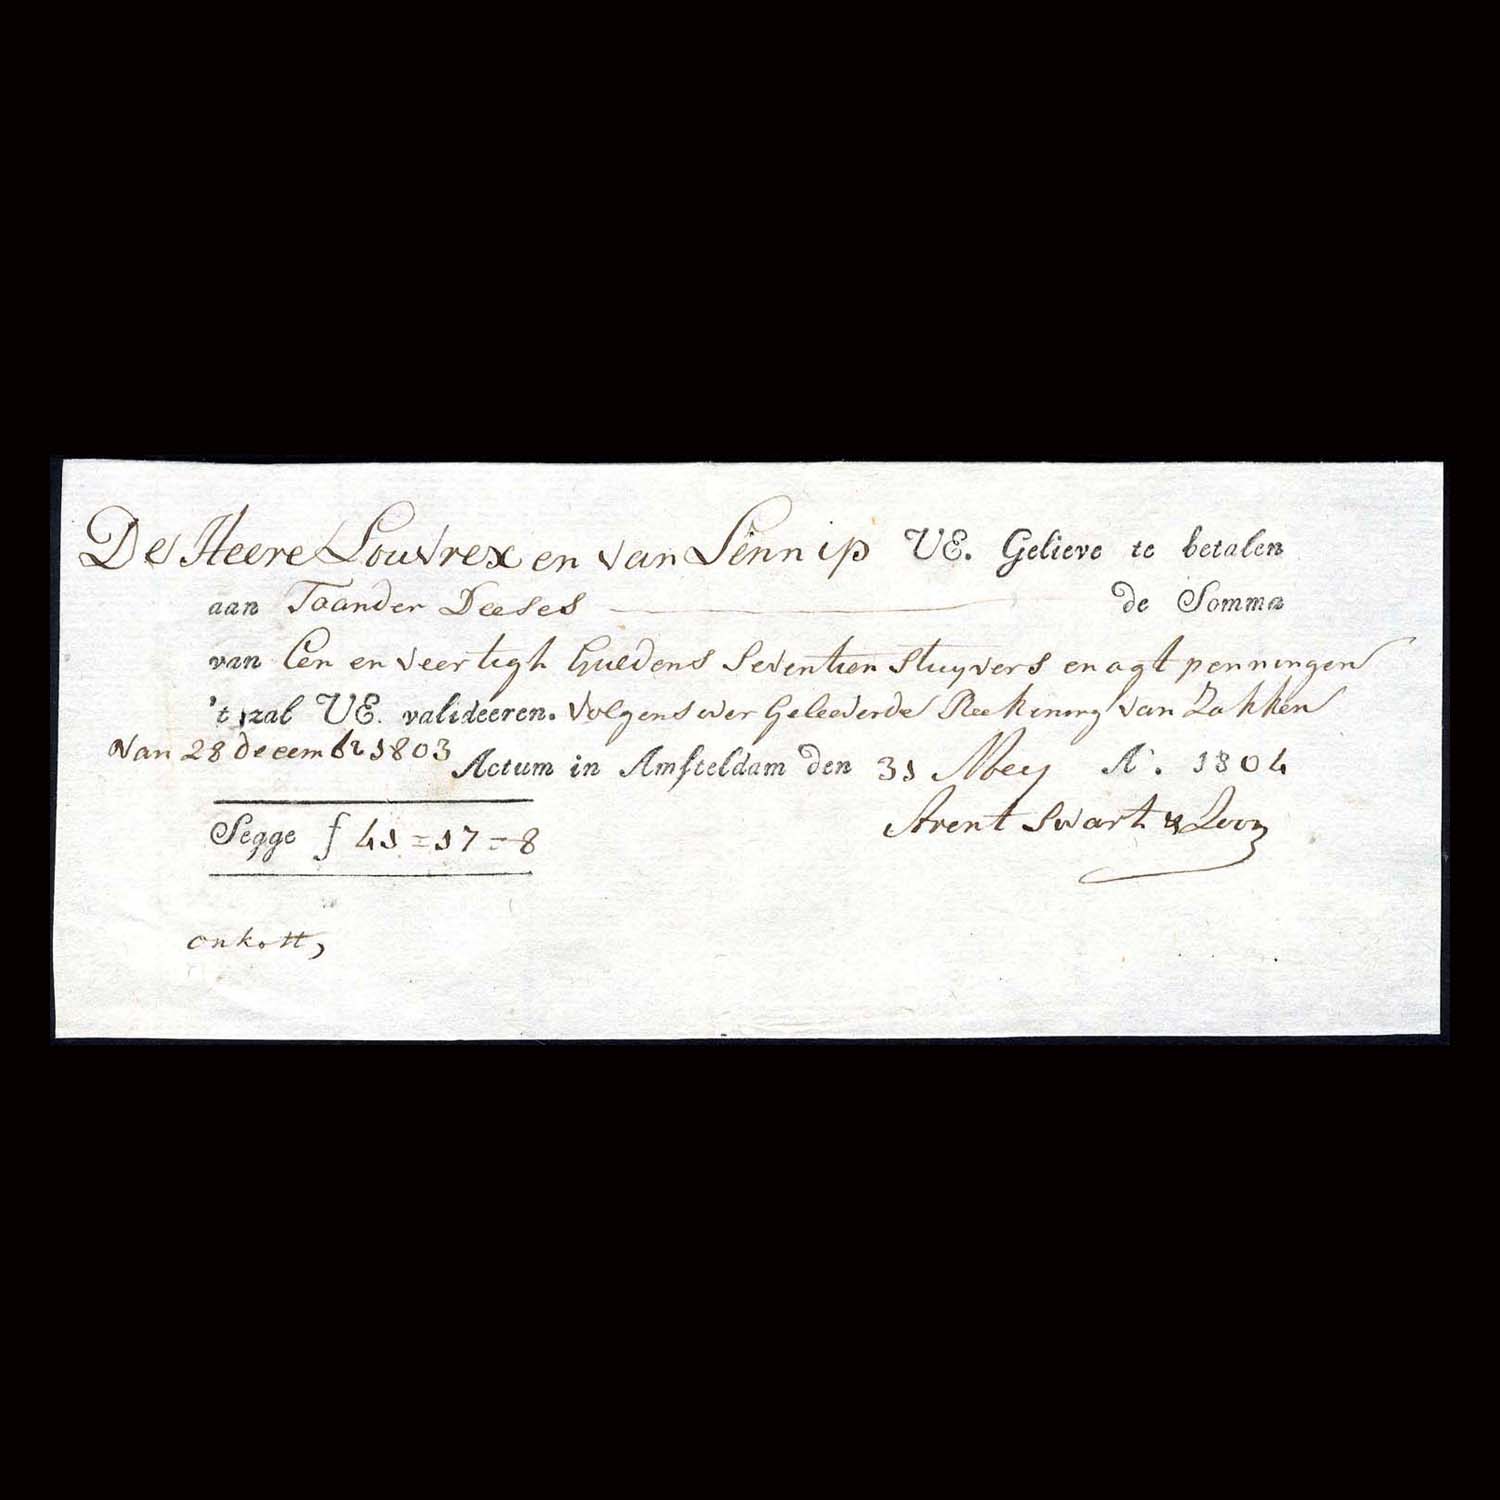 De Heere Louvrex en van Sennip UE. Gelieve te betalen
aan Toander Deeses de Somma
van Een en veertigh Guldens Seventien Stuyvers en agt penningen
't zal UE. valideeren. volgens over Geleeverde Reekening van Zakken
van 28 decembr 1803
Actum in Amsteldam den 31 Mey Ao. 1804
Segge ƒ 41=17=8
Arent Swart & Zoon
onkott,